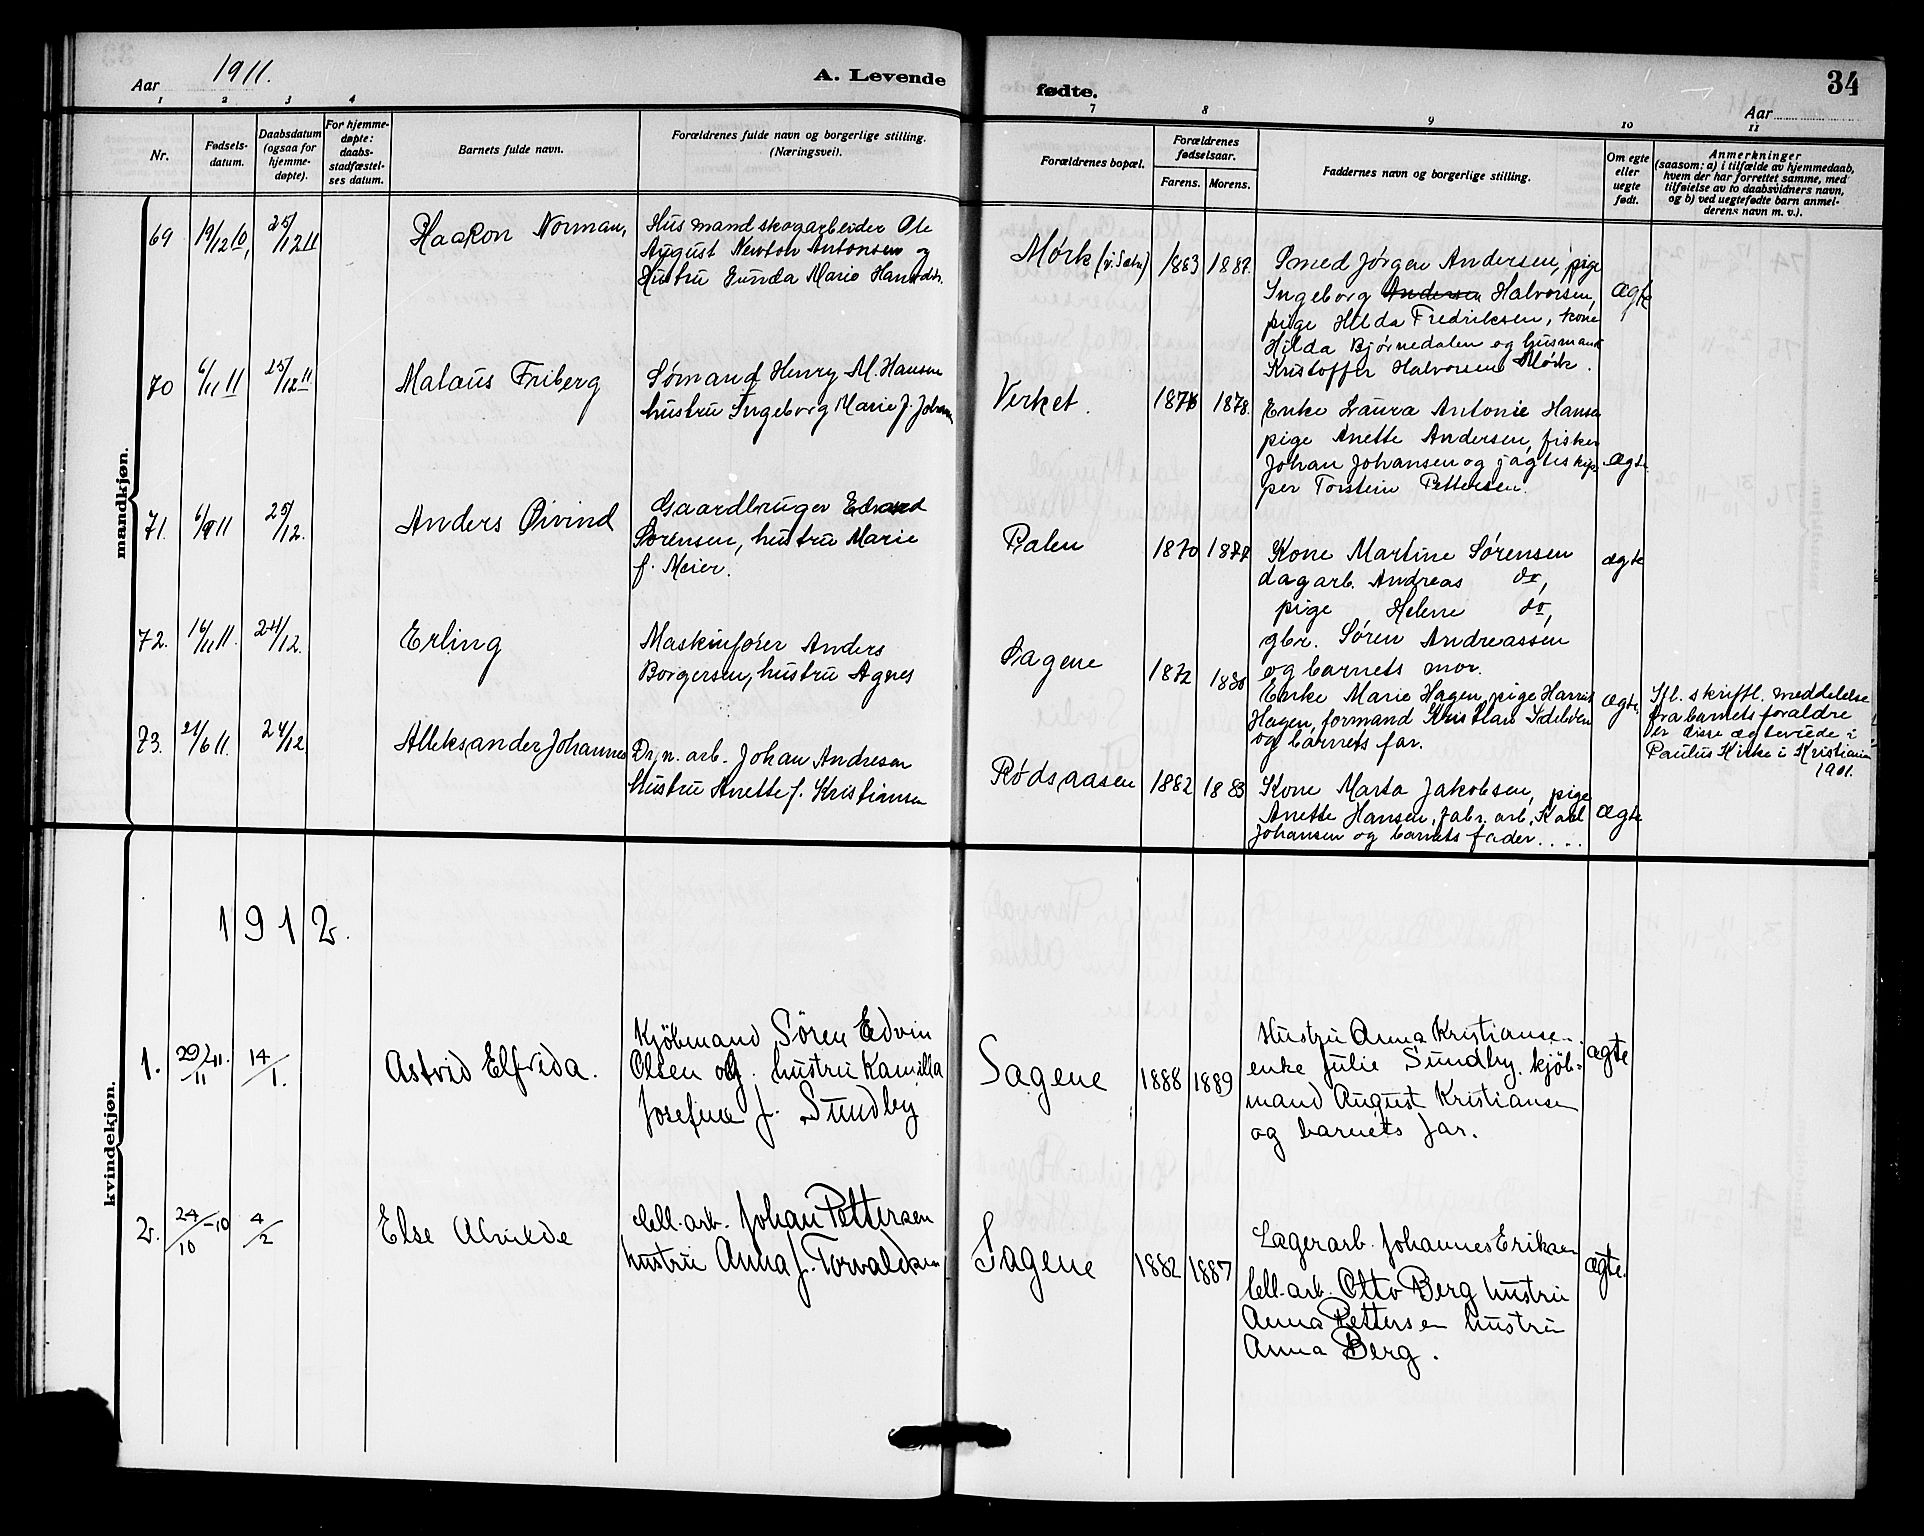 Aar 1911.
A. Levende
fødte.
34
Aar
1 2 3 4
7 8 9 10 11
Nr.
Fødsels-
datum.
Daabsdatum
(ogsaa for
hjemme-
døpte).
For hjemme-
døpte:
daabs-
stadfæstel-
ses datum.
Barnets fulde navn.
Forældrenes fulde navn og borgerlige stilling.
(Næringsvei).
Forældrenes bopæl.
Forældrenes
fødselsaar.
Farens. Morens.
Faddernes navn og borgerlige stilling.
Om egte
eller
uegte
født.
Anmerkninger
(saasom: a) i tilfælde av hjemmedaab,
hvem der har forrettet samme, med
tilføielse av to daabsvidners navn,
og b) ved uegtefødte barn anmel-
derens navn m. v.).
mandkjøn.
69 19/12 10, 25/12 11
Haakon Norman,
Husmand skogarbeider Ole
August Newton Antonsen og
Hustru Gunda Marie Hansdtr.
Mørk (v: Sætre) 1883 1887.
Smed Jørgen Andersen, pige
Ingeborg Andersen Halvorsen,
pige Hilda Fredriksen, kone
Hilda Bjørnedalen og husmand
Kristoffer Halvorsen Mørk.
ægte
70 6/11 11 25/12 11
Malaus Friberg
Sømand Henry M. Hansen
hustru Ingeborg Marie J. Johan
Verket. 1876 1878.
Enke Laura Antonie Hansen
pige Anette Andersen, fisker
Johan Johansen og jagtskip-
per Torstein Pettersen.
ægte
71. 6/9 11 25/12.
Anders Øivind
Gaardbruger Edvard
Sørensen, hustru Marie
f. Meier.
Ralen 1870 1877
Kone Martine Sørensen
dagarb. Andreas do,
pige Helene do,
gbr. Søren Andreassen
og barnets mor.
ægte
72. 16/11 11. 24/12.
Erling
Maskinfører Anders
Borgersen, hustru Agnes
Sagene 1872 1880
Enke Marie Hagen, pige Harriet
Hagen, formand Kristian Idelsven
og barnets far.
ægte.
Ifl. skriftl. meddelelse
fra barnets forældre
er disse ægteviede i
Paulus Kirke i Kristiania
1901.
73. 21/6 11. 24/12
Alleksander Johannes
Dyn. arb. Johan Andresen
hustru Anette f. Kristiansen
Rødsaasen 1882 1883
Kone Marta Jakobsen, pige
Anette Hansen, fabr. arb. Karl
Johansen og barnets fader....
ægte
1912.
kvindekjøn.
1. 29/11-11. 14/1.
Astrid Elfrida.
Kjöbmand Sören Edvin
Olsen og hustru Kamilla
Josefine f. Sundby
Sagene 1888 1889
Hustru Anna Kristianse-
enke Julie Sundby. kjöb-
mand August Kristiansen
og barnets far.
ægte
2. 24/10-10 4/2
Else Alvilde
Cell. arb. Johan Pettersen
hustru Anna f. Torvaldsen
Sagene 1882 1887
Lagerarb. Johannes Eriksen
Cell. arb. Otto Berg hustru
Anna Pettersen hustru
Anna Berg.
ægte.